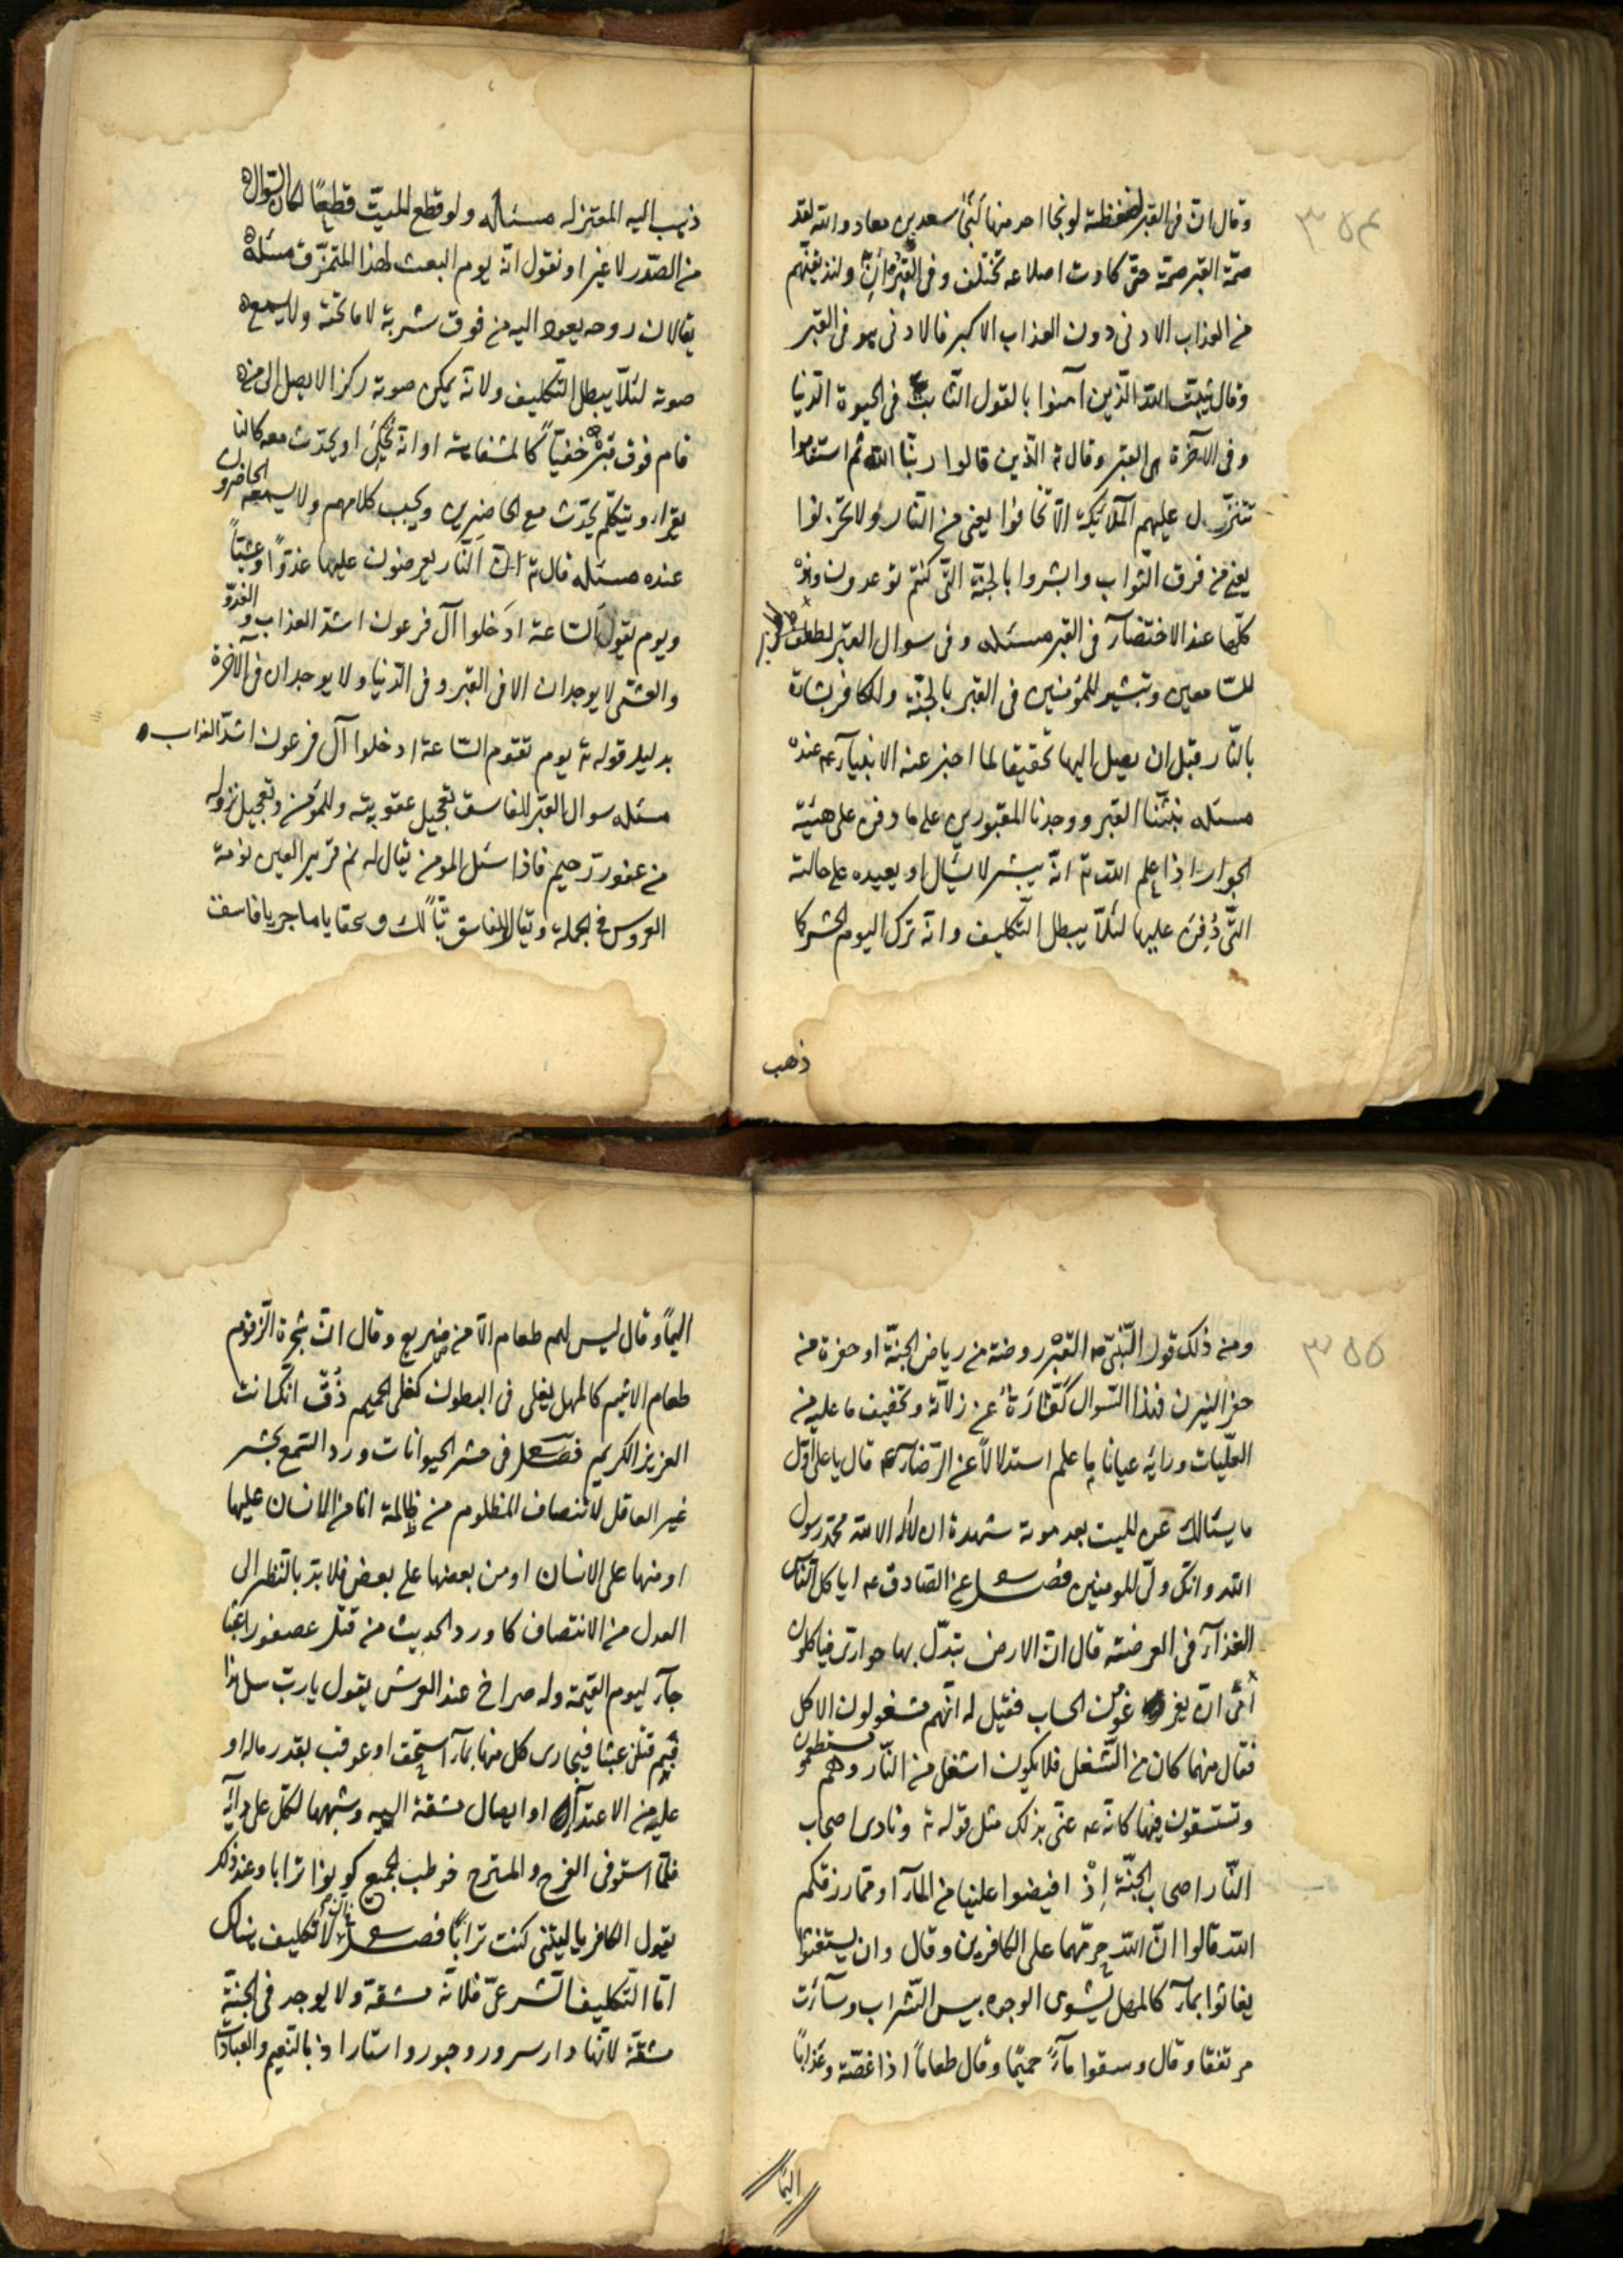 ٣٥٤
وقال ان فى القبر لضغطة لو نجا احد منها لنجى سعد بن معاد والله لقد
ضمّه القبر ضمّة حتى كادت اضلاعه تختلف وفى القرءان ولنذيقنّهم
من العذاب الادنى دون العذاب الاكبر فالادنى هو فى القبر
وقال يثبت الله الذين آمنوا بالقول الثابت فى الحيوة الدنيا
وفى الآخرة هى القبر وقال تع الذين قالوا ربّنا الله ثم استقاموا
تتنزّل عليهم الملائكة الاّ تخافوا يعنى من النار ولا تحزنوا
يعنى من فرق الثواب وابشروا بالجنّة التى كنتم توعدون وهذه
كلّها عند الاختضآر فى القبر مسئله وفى سوال القبر لطف
للسّامعين وتبشير للمؤمنين فى القبر بالجنّة وللكافر بشارة
بالنّار قبل ان يصل اليها تحقيقا لما اخبر عنه الانبيآء عم عنده
مسئله نبشنا القبر ووجدنا المقبورين على ما دفن على هئية
الجوار اذا علم الله تع انّه يبشر لا يسال او يعيده على حالته
التّى دُفِنَ عليها لئلاّ يبطل التّكليف وانه ترك اليوم الحشر كما
ذهب
ذهب اليه المعتزله مسئله ولو قطع الميّت قطعًا لكان السّوال
من الصّدر لا غير او نقول انّه يوم البعث لهذا المتمزّق مسئله
يقال ان روحه يعود اليه من فوق شربة لا ما تحته ولا يسمع
صوته لئلاّ يبطل التّكليف ولانّه يمكن صوته ركزا لا يصل الى من
قام فوق قبره خفيّاً كالمشفاهة او انه يحكى او يحدّث معه كالنا
يقرا، ويتكلم يحدّث مع الحاضرين ويجيب كلامهم ولا يسمعه الحاضرون
عنده مسئله قال تع النّار يعرضون عليها غدوّا وعشيّاً
ويوم تقول السّاعة ادخلوا آل فرعون اشدّ العذاب والغدوّ
والعشى لا يوجدان الا فى القبر وفى الدّنيا ولا يوجدان فى الآخرة
بدليل قوله تع يوم تقوم السّاعة ادخلوا آل فرعون اشدّ العذاب
مسئله سوال القبر للفاسق تعجيل عقوبيته وللمؤمن وتعجيل نزوله
من غفور رحيم فاذا سئل المومن يقال له نم قرير العين نومة
العروس فى الجملة ويقال للفاسق تبّاً لك وسحقا يا ما جريا فاسق
٣٥٥
ومن ذلك قول النّبىّ ص القبر روضة من رياض الجنّة او حفرة من
حفر النيرن فهذا السّوال كفّارةٌ عن زلاّته وتخفيف ما عليه من
العلّيات ورايه عيانا ما علم استدلالاً عن الرّضآ عم قال يا على اوّل
ما يسئالك عن الميت بعد موته شهدة ان لا اله الا الله محمّد رسول
الله وانّك ولىّ المومنين فصل عن الصّادق عم ايا كل النّاس
الغذآء فى العرضة قال ان الارض تبدّل بها حوارى فياكلون
الى ان يفرغون من الحساب فقيل له انّهم مشغولون الاكل
فقال منهما كان من الشّغل فلا يكون اشغل من النّار وهم يستطعمون
وتستسقون فيها كانّه عم عنى بذلك مثل قوله تع ونادى اصحاب
النّار اصحاب الجنّة إذ افيضوا علينا من المآء او ممّا رزقكم
الله قالوا انّ الله حرّمهما على الكافرين وقال وان يستغثوا
يغاثوا بمآء كالمهل يشوى الوجوه بيس الشّراب وسآءت
مرتفقا وقال وسقوا مآءً حميّما وقال طعاماً اذا غصّة وعذاباً
اليمًا
اليماً وقال ليس لهم طعام الاّ من ضريع وقال انّ شجرة الزّقوم
طعام الاثيم كالمهل يغلى فى البطون كغلى الحميم ذُق انّك انت
العزيز الكريم فصل فى حشر الحيوانات ورد السّمع بحشر
غير العاقل لانتصاف المظلوم من ظالمة امّا من الانسان عليها
او منها على الانسان او من بعضها على بعض فلا بدّ بالنظر الى
العدل من الانتصاف كما ورد الحديث من قتل عصفورا عبثا
جآء ليوم القيمة وله صراخ عند العرش يقول يا ربّ سل هذا
فيم قتلن عبثا فيجارى كل منها بمآء استحق او عوقب بقدر ماله او
عليه من الاعتدآء او ايصال مشقة اليه وشبهها لتحمّل على دآئه
فلمّا استوفى الفرح والمسترح خوطب الجميع كويوا ترابا وعند ذلك
يقول الكافر يا ليتنى كنت تراباً فصل لا تكليف هناك
امّا التّكليف الشّرعىّ فلانّه مشقة ولا يوجد فى الجنّة
مشقّة لانّها دار سرور وحبور واستارا دا بالنّعيم والعبادات